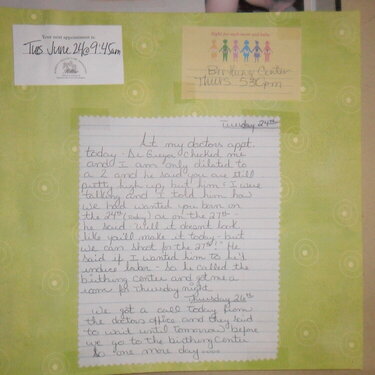 Your next appointment is:
Tues. June 24 @ 9:45am
Right for each mom and baby.
Birthing Center
Thurs 5:30pm
Tuesday 24th
At my doctors appt.
today - Dr Greyer checked me
and I am only dilated to
a 2 and he said you are still
pretty high up, but him & I were
talking and I told him how
we had wanted you born on
the 24th (today) or on the 27th -
he said - Well it doesnt look
like you'll make it today - but
we can shoot for the 27th! He
said if I wanted him to he'll
induce labor - So he called the
birthing center and got me a
room for Thursday night.
Thursday 26th
We got a call today from
the doctors office and they said
to wait until tomorrow before
we go to the birthing center
So one more day....